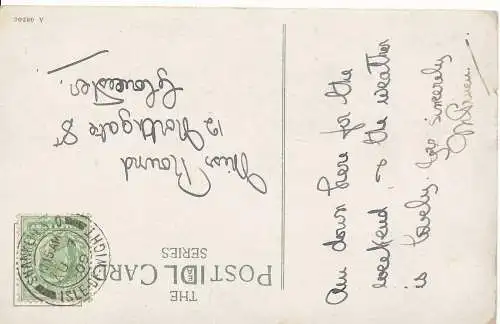 THE
POST CARD
SERIES
Am down here for the
weekend, & the weather
is lovely. Yrs sincerely
Miss Round
12 Northgate St
Gloucester.
SHANKLIN
ISLE-OF-WIGHT